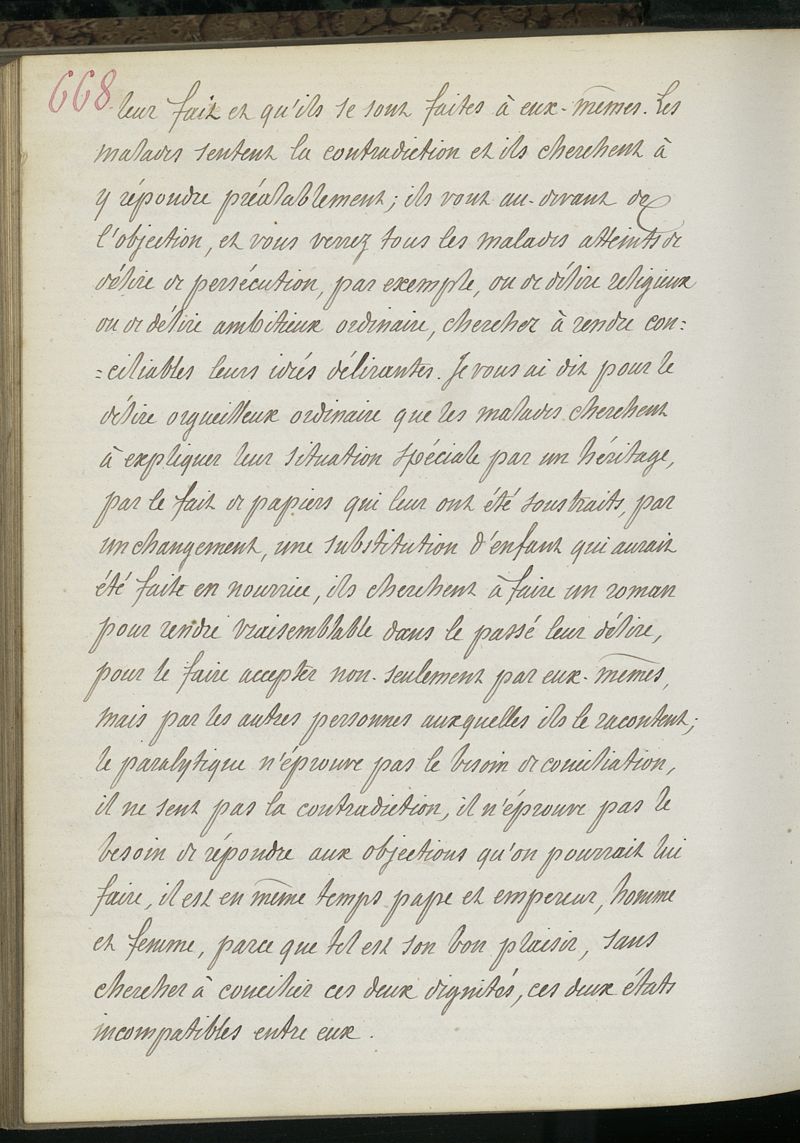 668
leur fait et qu'ils se sont faites à eux-mêmes. Les
malades sentent la contradiction et ils cherchent à
y répondre préalablement; ils vont au-devant de
l'objection, et vous verrez tous les malades atteints de
délire de persécution, par exemple, ou de délire religieux
ou de délire ambitieux ordinaire, chercher à rendre con=
=ciliables leurs idées délirantes. Je vous ai dit pour le
délire orgueilleux ordinaire que les malades cherchent
à expliquer leur situation spéciale par un héritage,
par le fait de papiers qui leur ont été soustraits, par
un changement, une substitution d'enfant qui aurait
été faite en nourrice, ils cherchent à faire un roman
pour rendre vraisemblable dans le passé leur délire,
pour le faire accepter non-seulement par eux-mêmes,
mais par les autres personnes auxquelles ils le racontent;
le paralytique n'éprouve pas le besoin de conciliation,
il ne sent pas la contradiction, il n'éprouve pas le
besoin de répondre aux objections qu'on pourrait lui
faire, il est en même temps pape et empereur, homme
et femme, parce que tel est son bon plaisir, sans
chercher à concilier ces deux dignités, ces deux états
incompatibles entre eux.